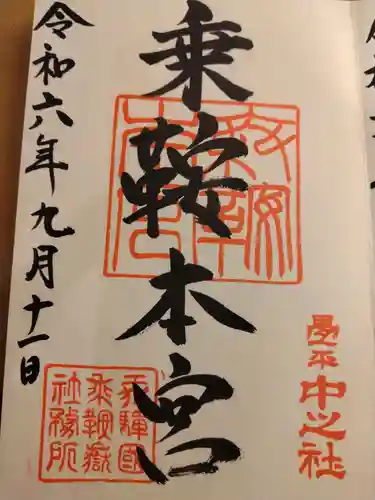 畳平
中之社
乗鞍本宮
令和六年九月十一日
飛騨国
乗鞍嶽
社務所